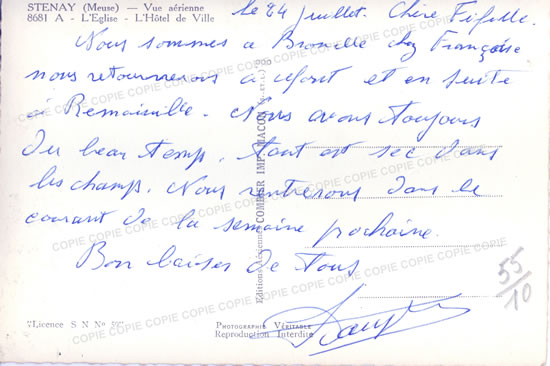 STENAY (Meuse) — Vue aérienne
8681 A - L'Eglise - L'Hôtel de Ville
le 24 juillet. Chère Fifille.
Nous sommes a Bruxelle chez Françoise
nous retournerons a et en suite
a Remainville. Nous avons toujours
du beau temps. tout est sec dans
les champ. Nous rentrerons dans le
courant de la semaine prochaine.
Bon baiser de tous
55/10
Editions COMBIER IMP. MACON
Licence S N N°
PHOTOGRAPHIE VÉRITABLE
Reproduction Interdite
COPIE COPIE COPIE COPIE COPIE COPIE